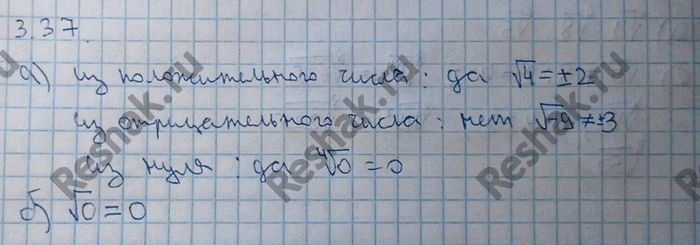 3.37.
а) из положительного числа: да √4 = ±2
из отрицательного числа: нет √-9 ≠ ±3
из нуля: да ⁴√0 = 0
б) √0 = 0
Reshak.ru
Reshak.ru
Reshak.ru
Reshak.ru